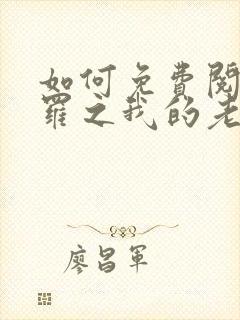 如何免费阅
罗之我的老
廖昌军